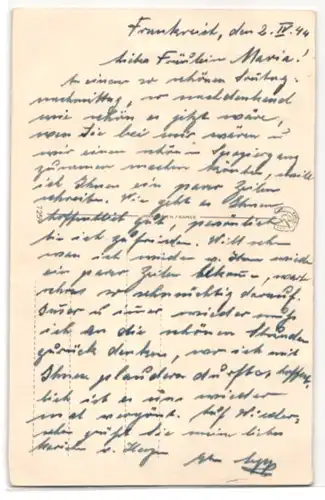 Frankreich, den 2. IV. 44
Liebes Fräulein Maria!
An einem so schönen Sonntag-
nachmittag, so nachdenkend
wie schön es jetzt wäre,
wen Sie bei mir wären u
wir einen schön Spaziergang
zusammen machen könnten, will
ich Ihnen ein paar Zeilen
schreiben. Wie geht es Ihnen
hoffentlich gut, persönlich
bin ich zufrieden. Will sehn
wan ich wieder v. Ihnen wieder
ein paar Zeilen bekome, wart
schon so sehnsüchtig darauf.
Imer u imer wieder muß
ich an die schönen Stunden
zurück denken, wo ich mit
Ihnen plaudern durfte, hoffent
lich ist es uns wieder
mal vergönt. Auf Wieder-
sehn grüßt Sie mein liebes
v. Herzen